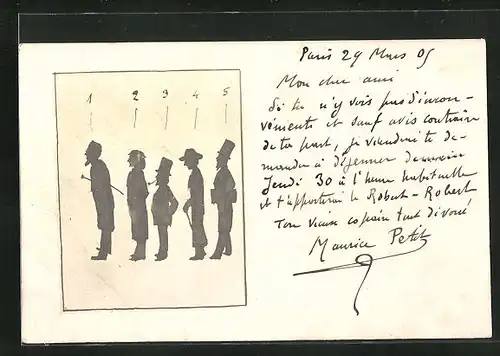 Paris 29 Mars 05
Mon cher ami
Si tu n'y vois pas d'incon-
vénients et sauf avis contraire
de ta part, je viendrai te de-
mander à déjeuner demain
Jeudi 30 à l'heure habituelle
et t'apporterai le Robert-Robert
Ton vieux copain tout dévoué
Maurice Petit
1 2 3 4 5